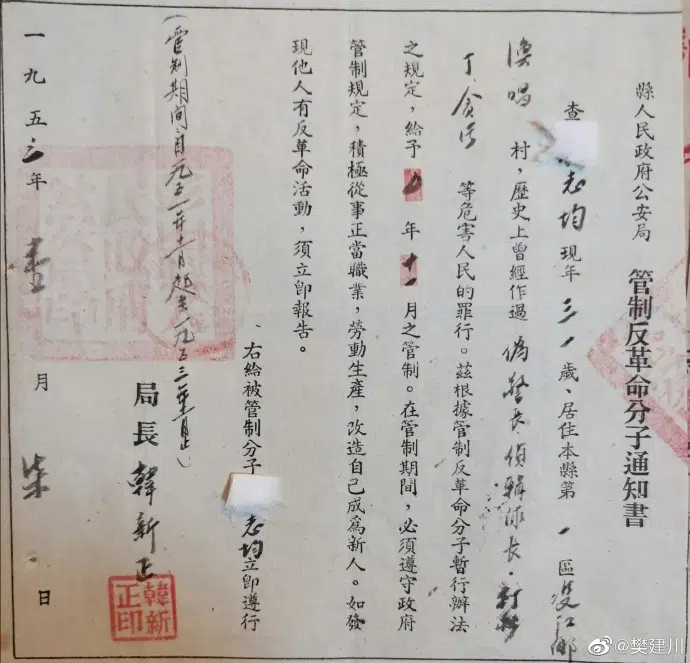 縣人民政府公安局 管制反革命分子通知書
查 志均現年三一歲、居住本縣第一區 江鄉
村，歷史上曾經作過偽警長偵緝隊長、
等危害人民的罪行。茲根據管制反革命分子暫行辦法
之規定，給予 年十一月之管制。在管制期間，必須遵守政府
管制規定，積極從事正當職業，勞動生產，改造自己成爲新人。如發
現他人有反革命活動，須立卽報告。
右給被管制分子 志均立卽遵行
局長韓新正
韓新正印
(管制期間自一九五 年 月起至一九五三年 月止)
一九五三年 月 日
@樊建川